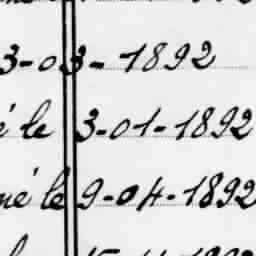 3-03-1892
é le 3-01-1892
né le 9-04-1892